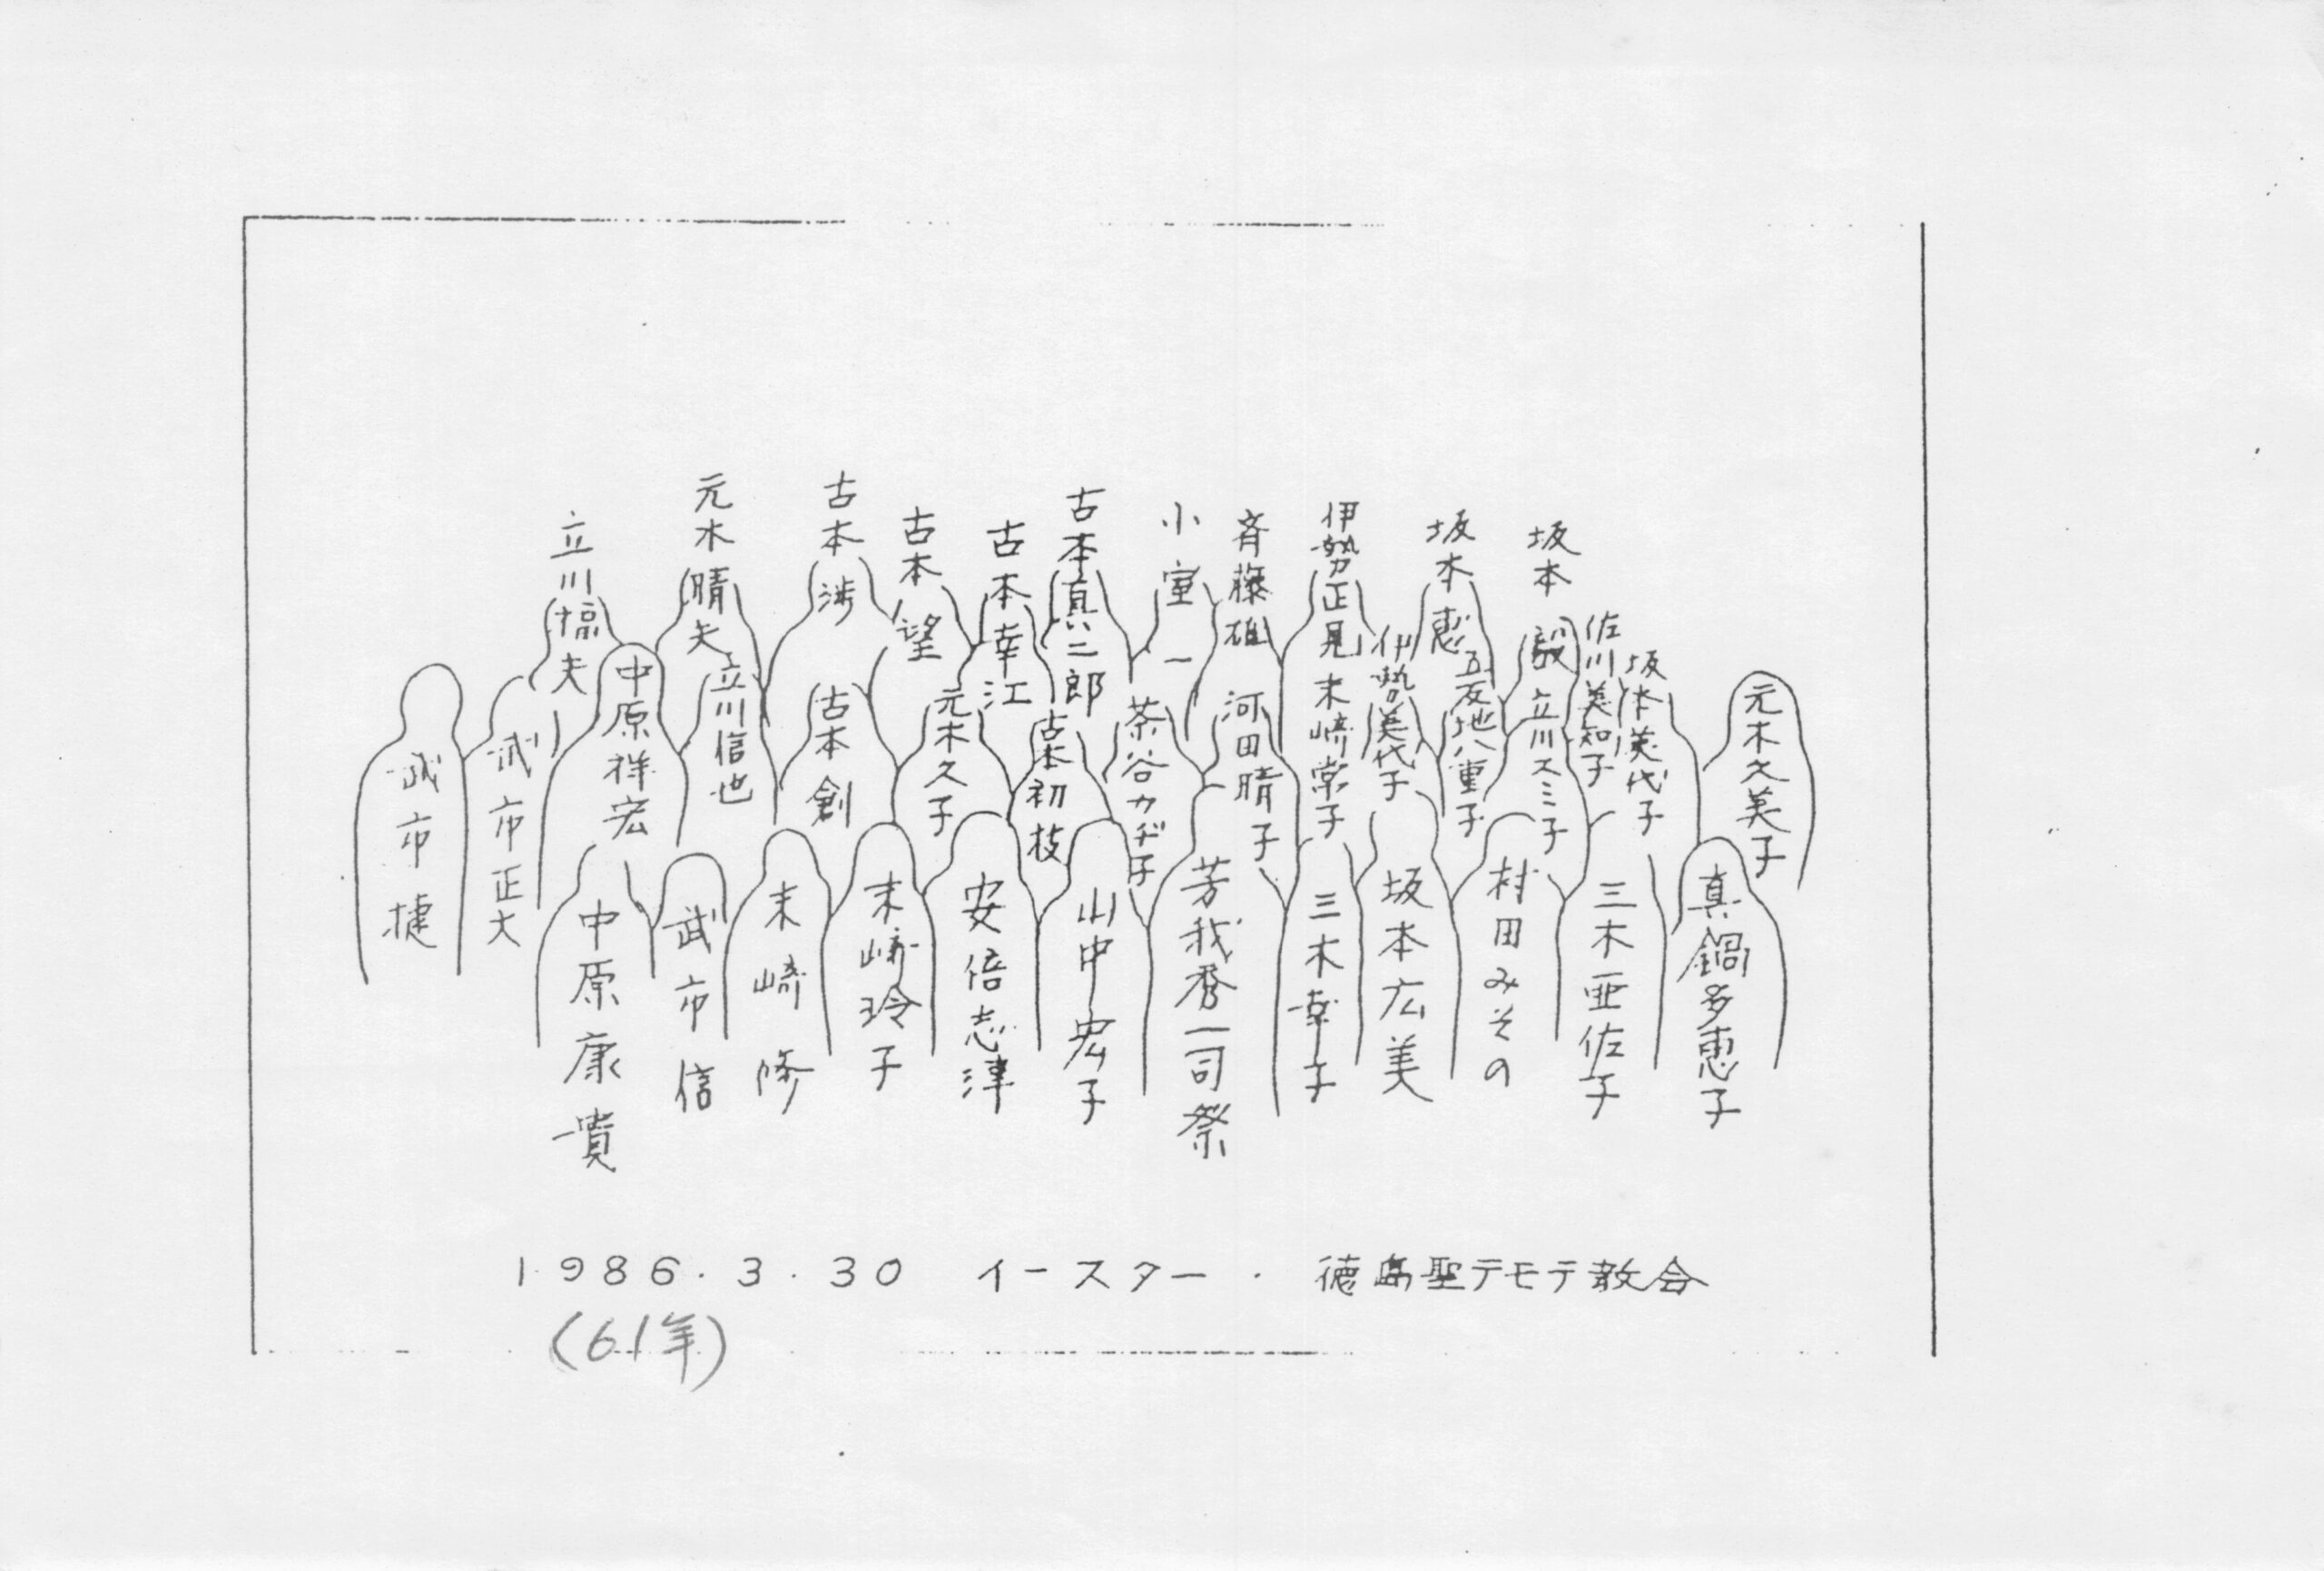 元木晴夫
古本渉
古本望
古本幸江
古本真二郎
小室一
斉藤雄
伊勢正晃
坂本恵
坂本毅
武市捷
武市正大
中原祥宏
立川信也
古本創
元木久子
古本初枝
茶谷カヂ子
河田晴子
末崎常子
伊勢美代子
五反地八重子
立川スミ子
佐川美知子
坂本美代子
元木久美子
中原康貴
武市信
末崎修
末崎玲子
安倍志津
山中宏子
芳我秀一司祭
三木幸子
坂本広美
村田みその
三木亜佐子
真鍋多恵子
1986.3.30 イースター・徳島聖テモテ教会
(61年)